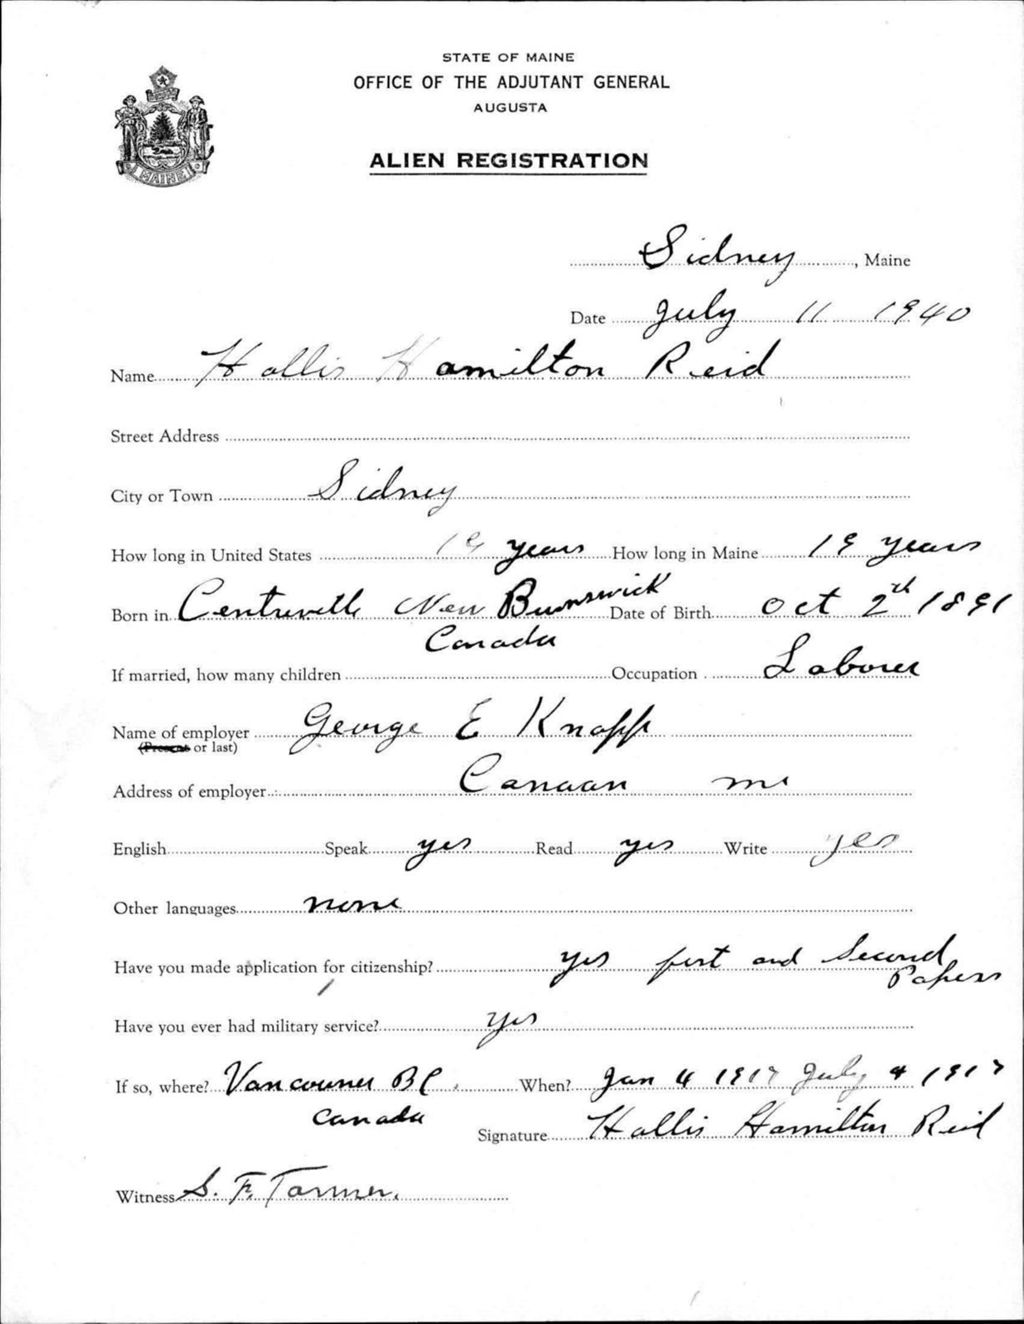 STATE OF MAINE
OFFICE OF THE ADJUTANT GENERAL
AUGUSTA
ALIEN REGISTRATION
Sidney, Maine
Date July 11 1940
Name Hollis Hamilton Reid
Street Address
City or Town Sidney
How long in United States 19 years How long in Maine 19 years
Born in Centreville New Brunswick Date of Birth Oct 2th 1891
Canada
If married, how many children Occupation Laborer
Name of employer George E Knapp
(Present or last)
Address of employer Canaan Me
English Speak yes Read yes Write yes
Other languages none
Have you made application for citizenship? yes first and Second
Papers
Have you ever had military service? yes
If so, where? Vancouver B C. When? Jan 4 1917 July 4 1917
Canada
Signature Hollis Hamilton Reid
Witness S. F. Farmer.
MAINE